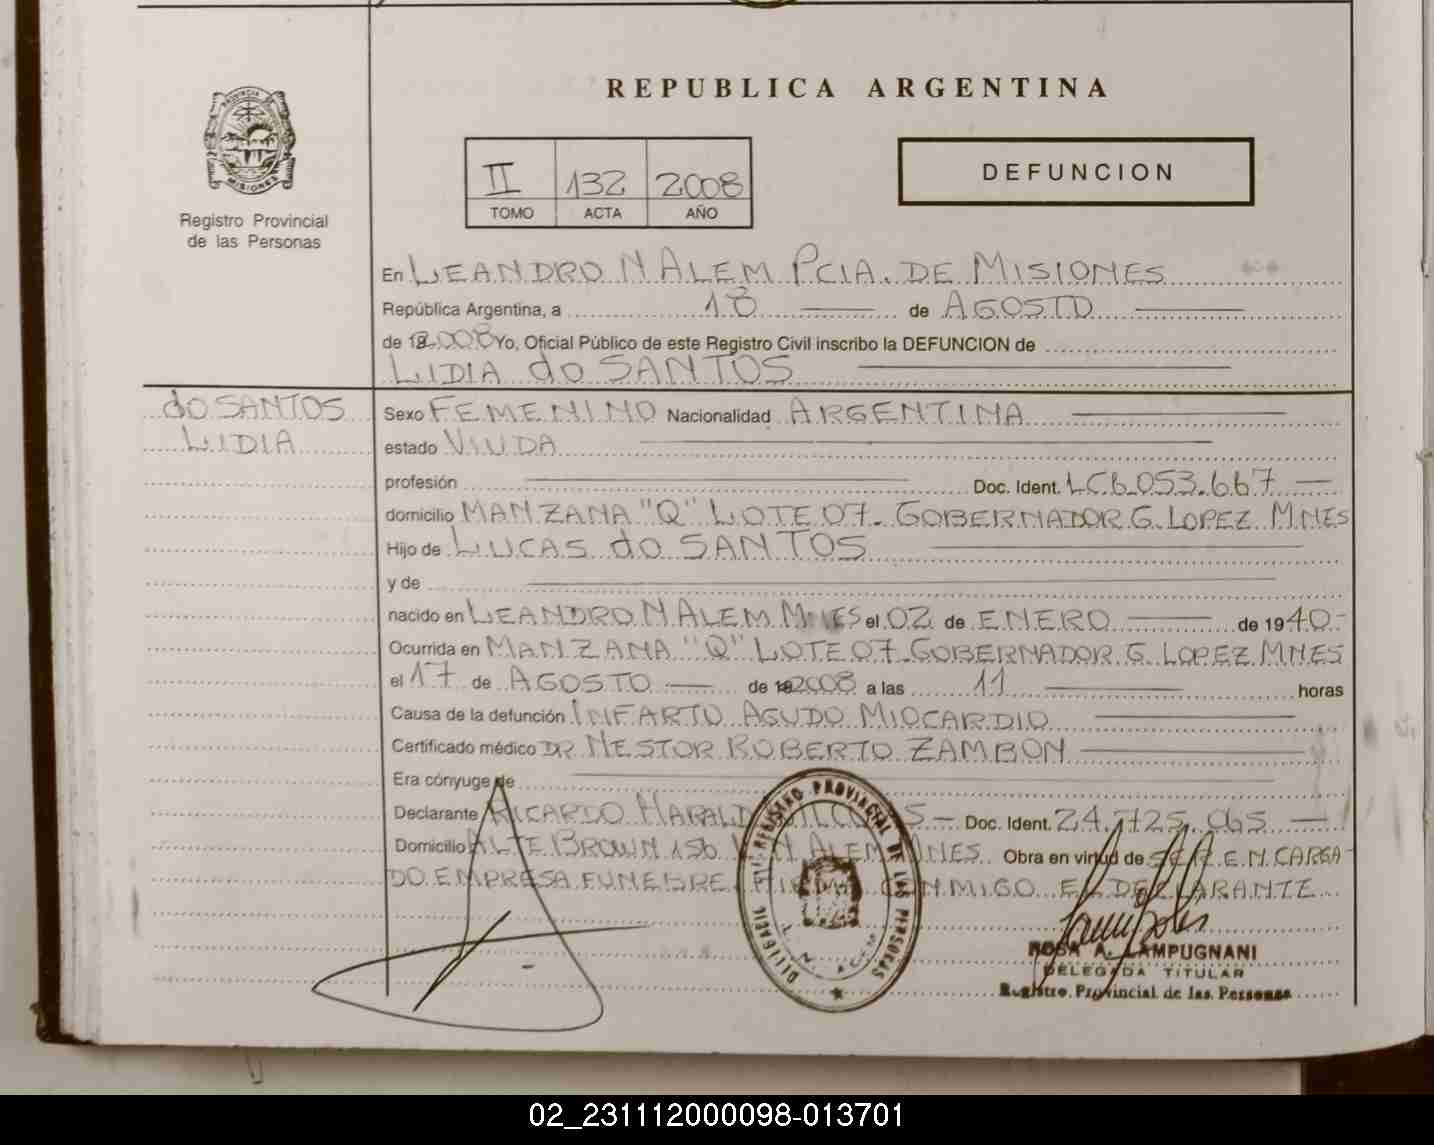 REPUBLICA ARGENTINA
PROVINCIA DE
MISIONES
Registro Provincial
de las Personas
II 132 2008
TOMO ACTA AÑO
DEFUNCION
En LEANDRO N ALEM PCIA. DE MISIONES
República Argentina, a 18 de AGOSTO
de 2008 Yo, Oficial Público de este Registro Civil inscribo la DEFUNCION de
LIDIA do SANTOS
do SANTOS
LIDIA
Sexo FEMENINO Nacionalidad ARGENTINA
estado VIUDA
profesión Doc. Ident. LC6.053.667
domicilio MANZANA "Q" LOTE 07- GOBERNADOR G. LOPEZ MNES
Hijo de LUCAS do SANTOS
y de
nacido en LEANDRO N ALEM MNES el 02 de ENERO de 1940-
Ocurrida en MANZANA "Q" LOTE 07-GOBERNADOR G. LOPEZ MNES
el 17 de AGOSTO de 2008 a las 11 horas
Causa de la defunción INFARTO AGUDO MIOCARDIO
Certificado médico DR NESTOR ROBERTO ZAMBON
Era cónyuge de
Declarante RICARDO Doc. Ident. 24.725.965
Domicilio ALTE BROWN 156 N ALEM MNES. Obra en virtud de SER EN CARGA-
DO EMPRESA FUNEBRE. FIRMA CONMIGO EL DECLARANTE
REGISTRO PROVINCIAL DE LAS PERSONAS
L. N. ALEM
ROSA A. LAMPUGNANI
DELEGADA TITULAR
Registro Provincial de las Personas
02_231112000098-013701